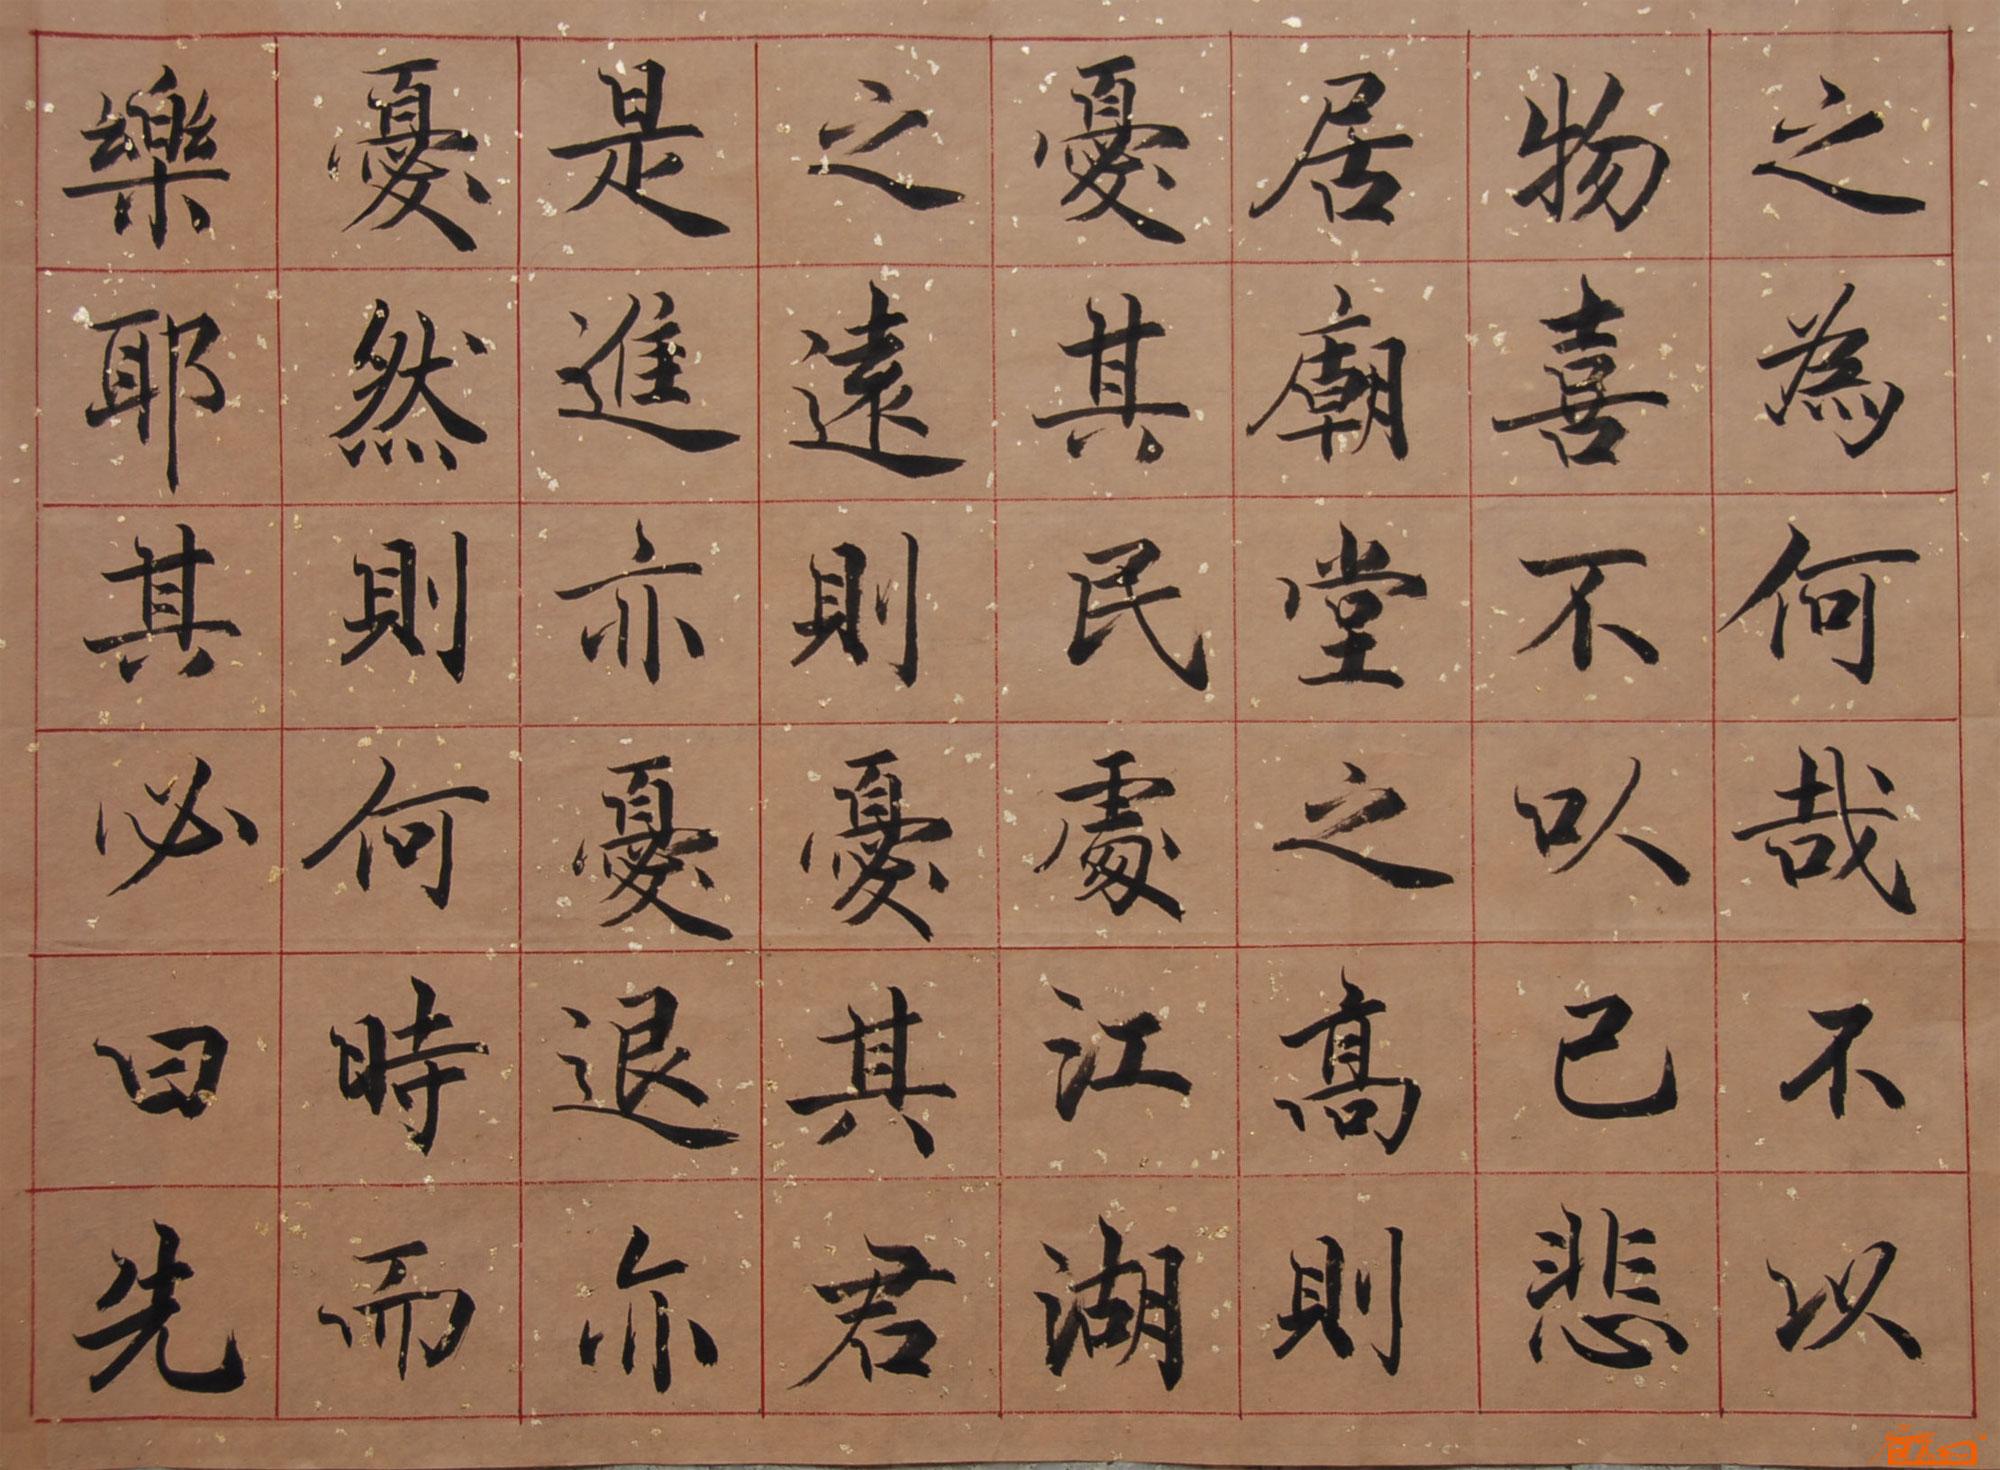 之為何哉不以
物喜不以己悲
居廟堂之高則
憂其民處江湖
之遠則憂其君
是進亦憂退亦
憂然則何時而
樂耶其必曰先